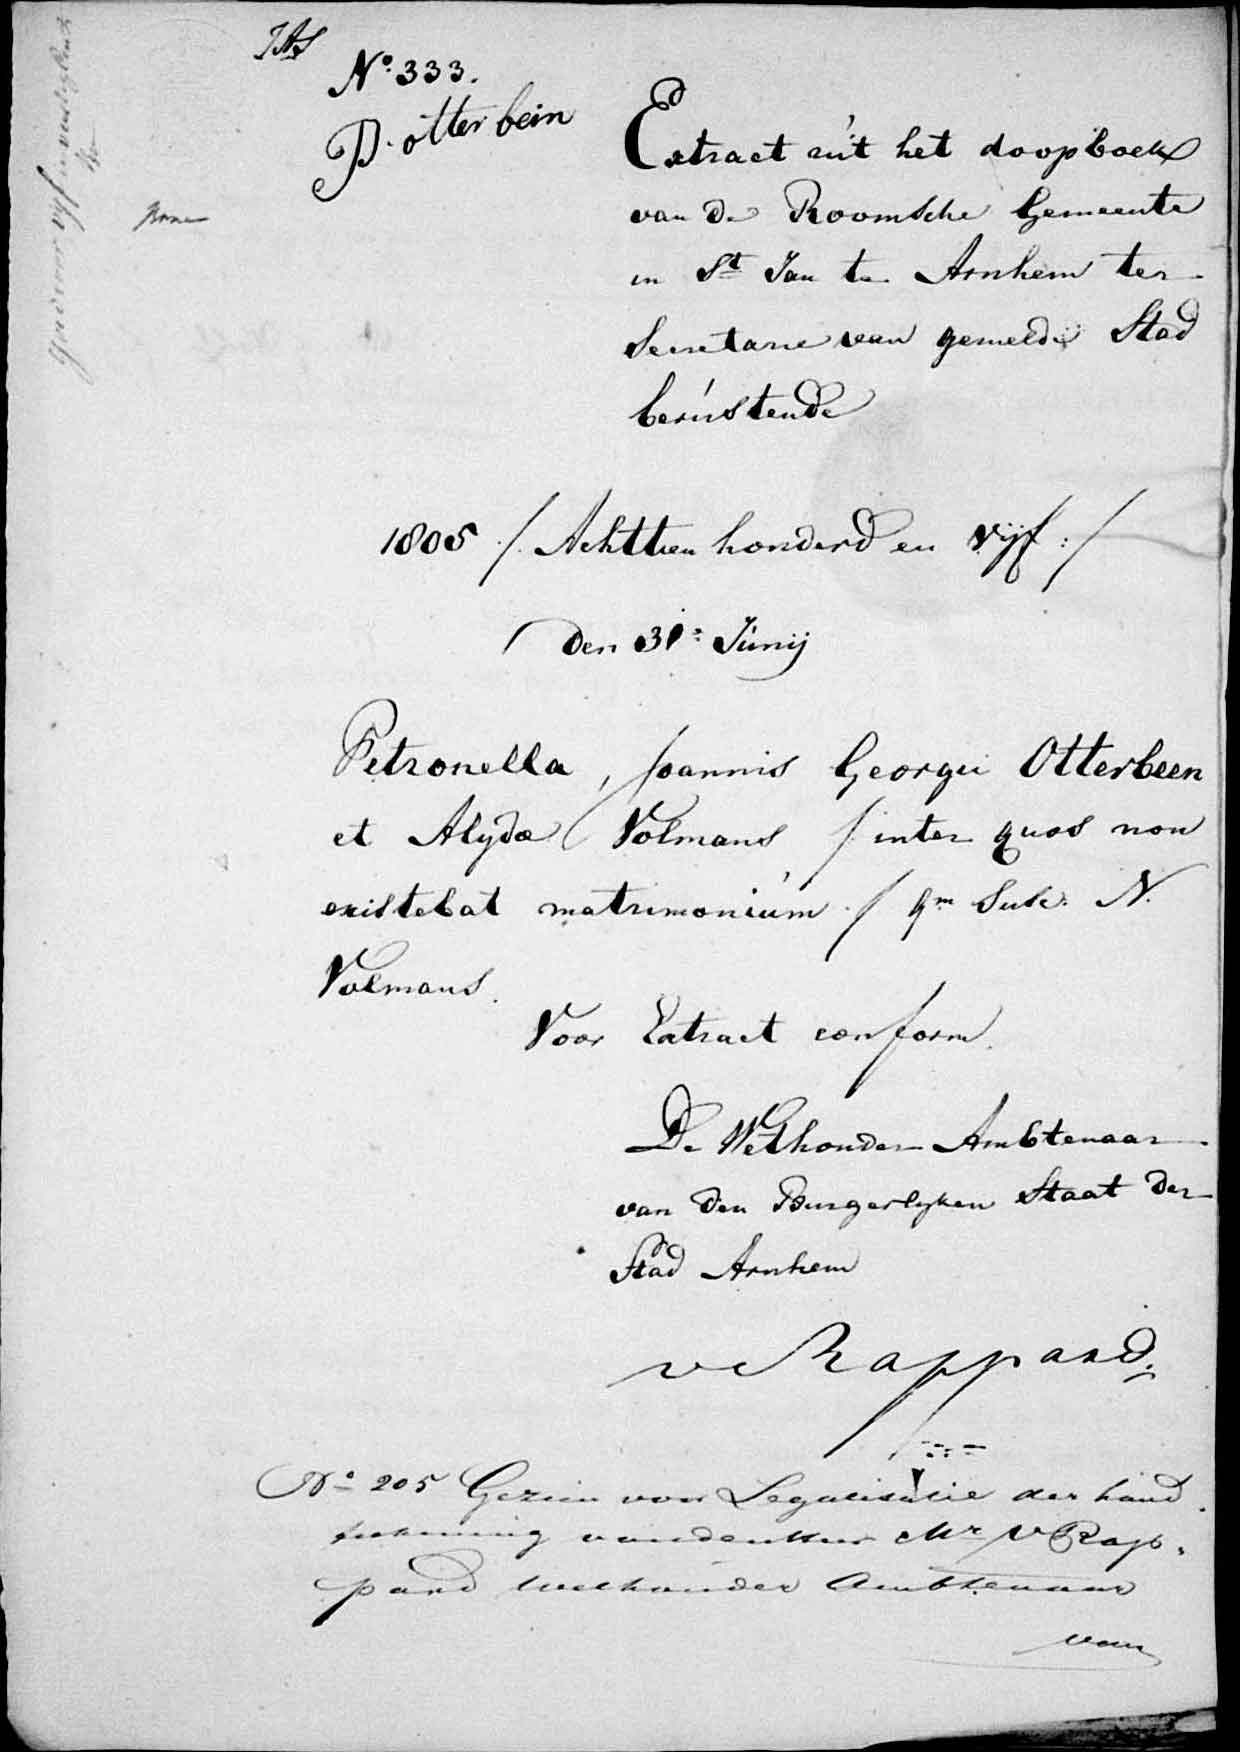 N° 333.
P. otterbein
Extract uit het doopboek
van de Roomsche Gemeente
in St Jan te Arnhem ter
Secretarie van gemelde Stad
berustende
1805 ./. Achttien honderd en vijf :/
den 31e Junij
Petronella, Joannis Georgii Otterbeen
et Alydæ Volmans /inter quos non
existebat matrimonium ./ qm Susc. N.
Volmans.
Voor Extract conform.
De Wethouder Ambtenaar
van den Burgerlyken Staat der
Stad Arnhem
v Rappard
N° 205 Gezien voor Legalisatie der hand
tekening van den Heer Mr v Rap-
pard Wethouder Ambtenaar
van